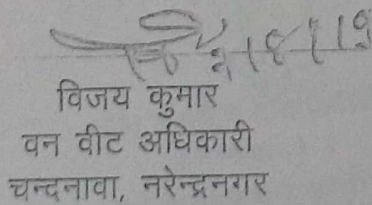 विजय कुमार
वन वीट अधिकारी
चन्दनावा, नरेन्द्रनगर